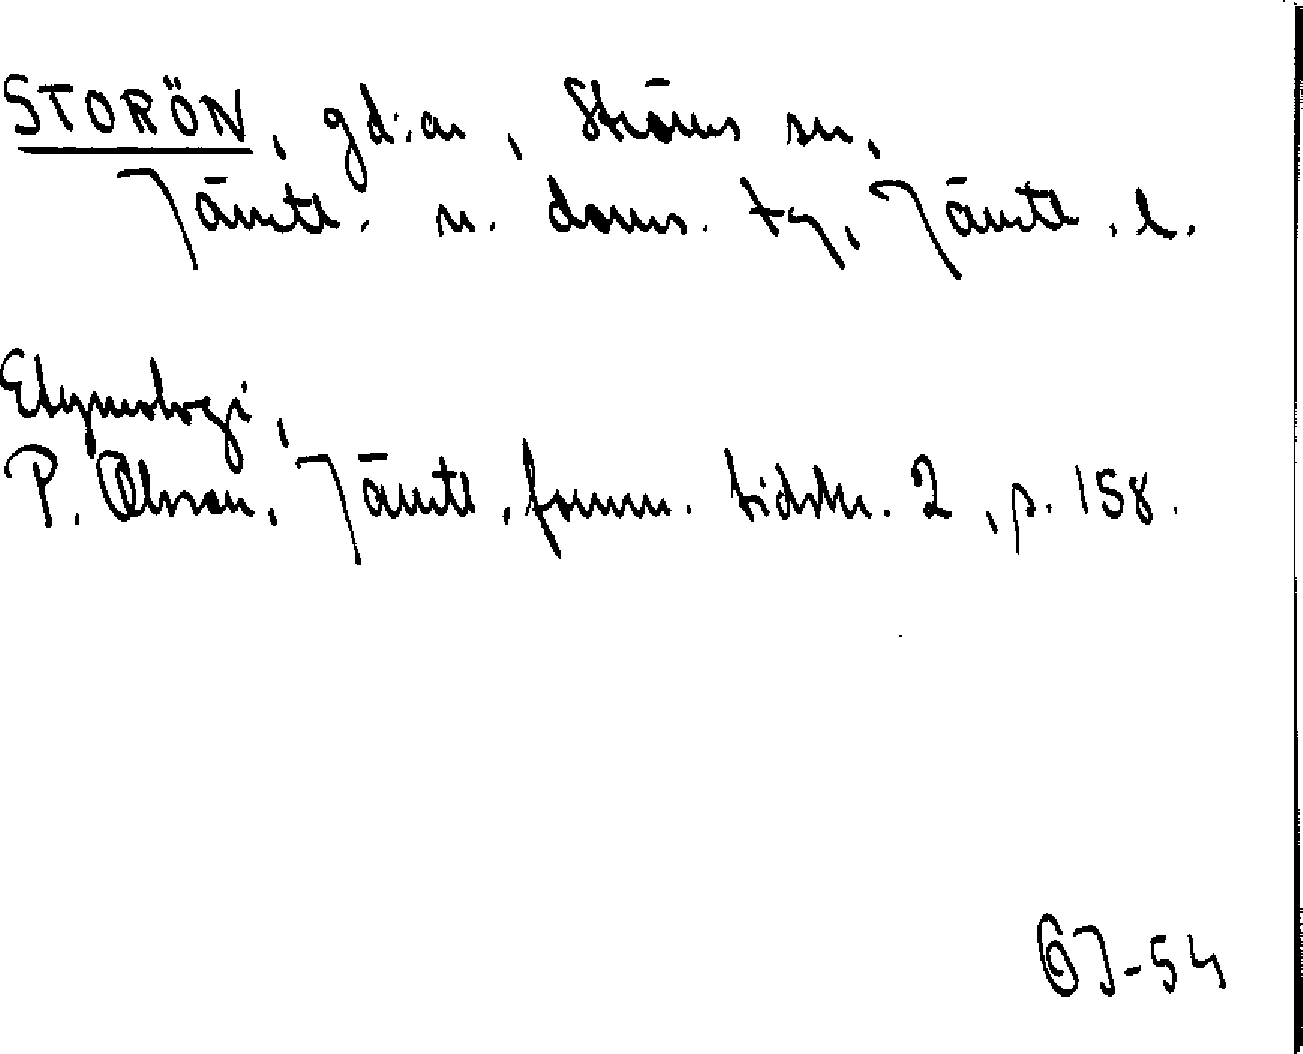 STORÖN, gd:ar, Ströms sn,
Jämtl. n. doms. tg, Jämtl. l.
Etymologi,
P. Olsson, Jämtl. fornm. tidskr. 2, p. 158.
GJ-54